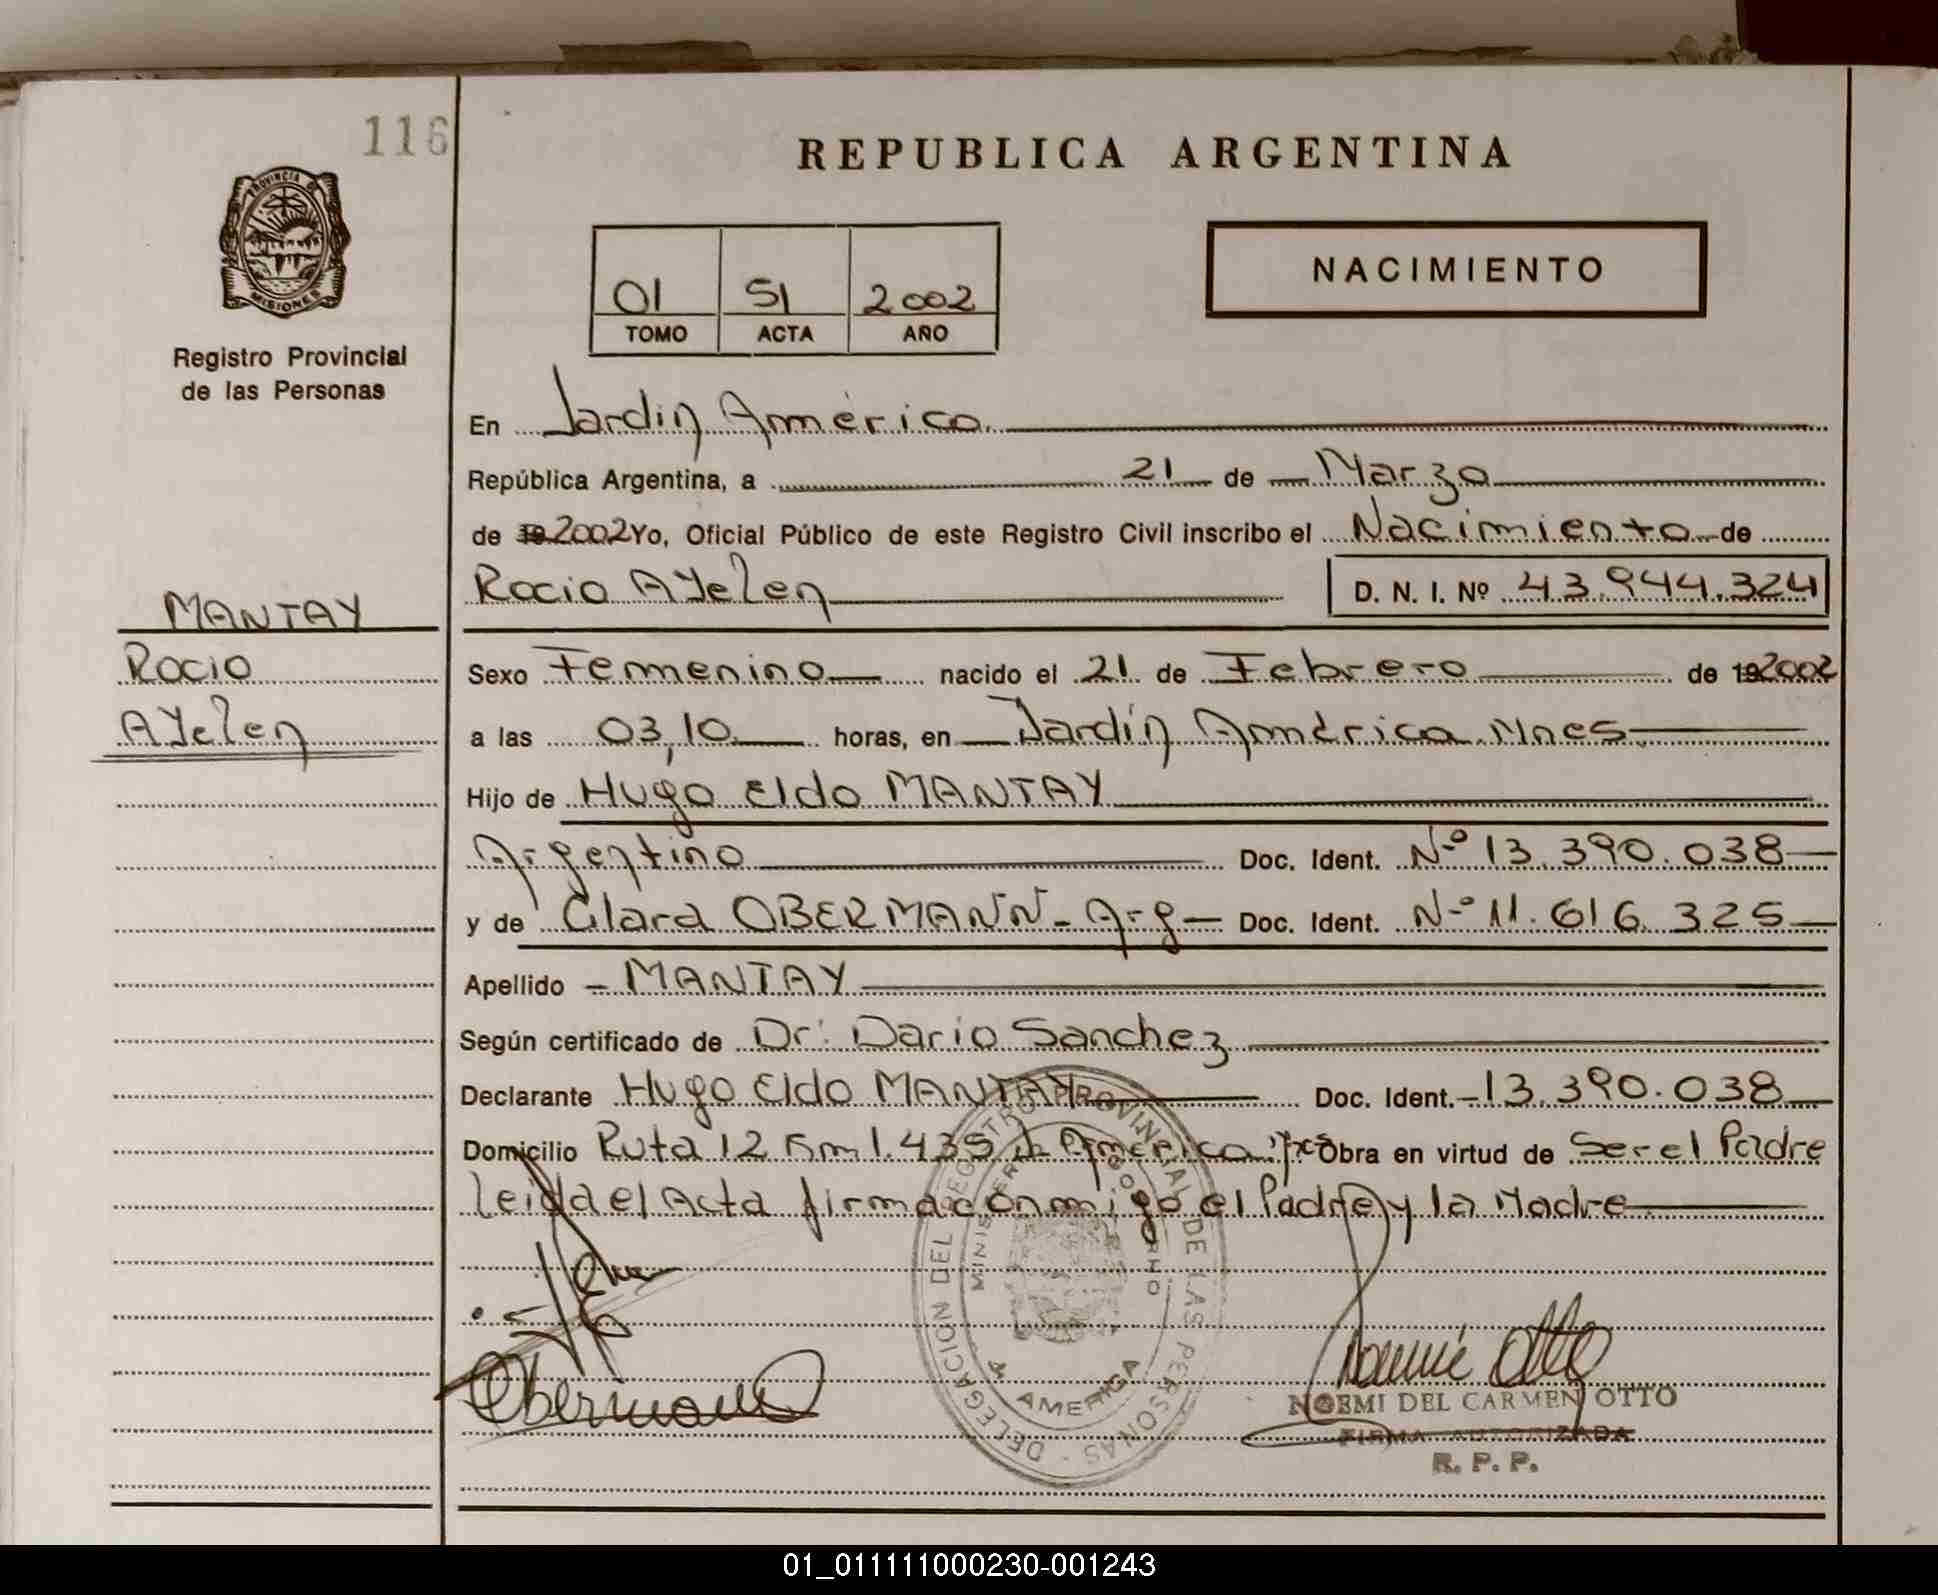 116
REPUBLICA ARGENTINA
PROVINCIA DE
MISIONES
NACIMIENTO
01 51 2002
TOMO ACTA AÑO
Registro Provincial
de las Personas
En Jardin América
República Argentina, a 21 de Marzo
de 19 2002 Yo, Oficial Público de este Registro Civil inscribo el Nacimiento de
Rocio AYelen D. N. I. Nº 43.944.324
MANTAY
Rocio
AYelen
Sexo Femenino nacido el 21 de Febrero de 19 2002
a las 03,10 horas, en Jardín América Mnes
Hijo de Hugo Eldo MANTAY
Argentino Doc. Ident. Nº 13.390.038
y de Clara OBERMANN - Arg Doc. Ident. Nº 11.616.325
Apellido - MANTAY
Según certificado de Dr: Dario Sanchez
Declarante Hugo Eldo MANTAY Doc. Ident. 13.390.038
Domicilio Ruta 12 Km 1.435 J. América Obra en virtud de Ser el Padre
leida el Acta firma conmigo el Padre y la Madre
DELEGACION DEL REGISTRO PROVINCIAL DE LAS PERSONAS
MINISTERIO GOBIERNO
J. AMERICA
Obermann
Noemí Otto
NOEMI DEL CARMEN OTTO
FIRMA AUTORIZADA
R. P. P.
01_011111000230-001243